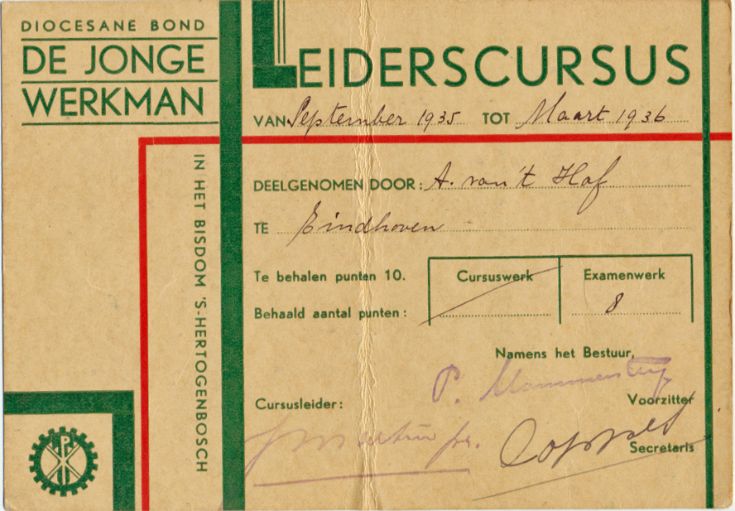 DIOCESANE BOND
DE JONGE
WERKMAN
IN HET BISDOM 'S-HERTOGENBOSCH
LEIDERSCURSUS
VAN September 1935 TOT Maart 1936
DEELGENOMEN DOOR: A. van 't Hof
TE Eindhoven
Te behalen punten 10. Cursuswerk Examenwerk
Behaald aantal punten: 8
Namens het Bestuur,
P.
Voorzitter
Cursusleider:
Secretaris